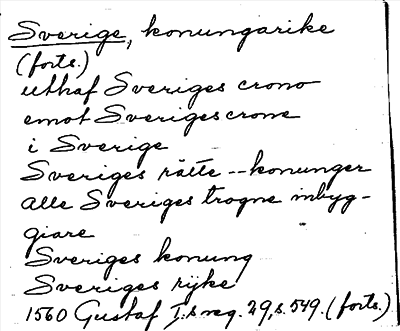 Sverige, konungarike
(forts.)
uthaf Sveriges crono
emot Sveriges crone
i Sverige
Sveriges rätte -- konunger
alle Sveriges trogne inbyg-
giare
Sveriges konung
Sveriges rijke
1560 Gustaf I:s reg. 29, s. 549. (forts.)